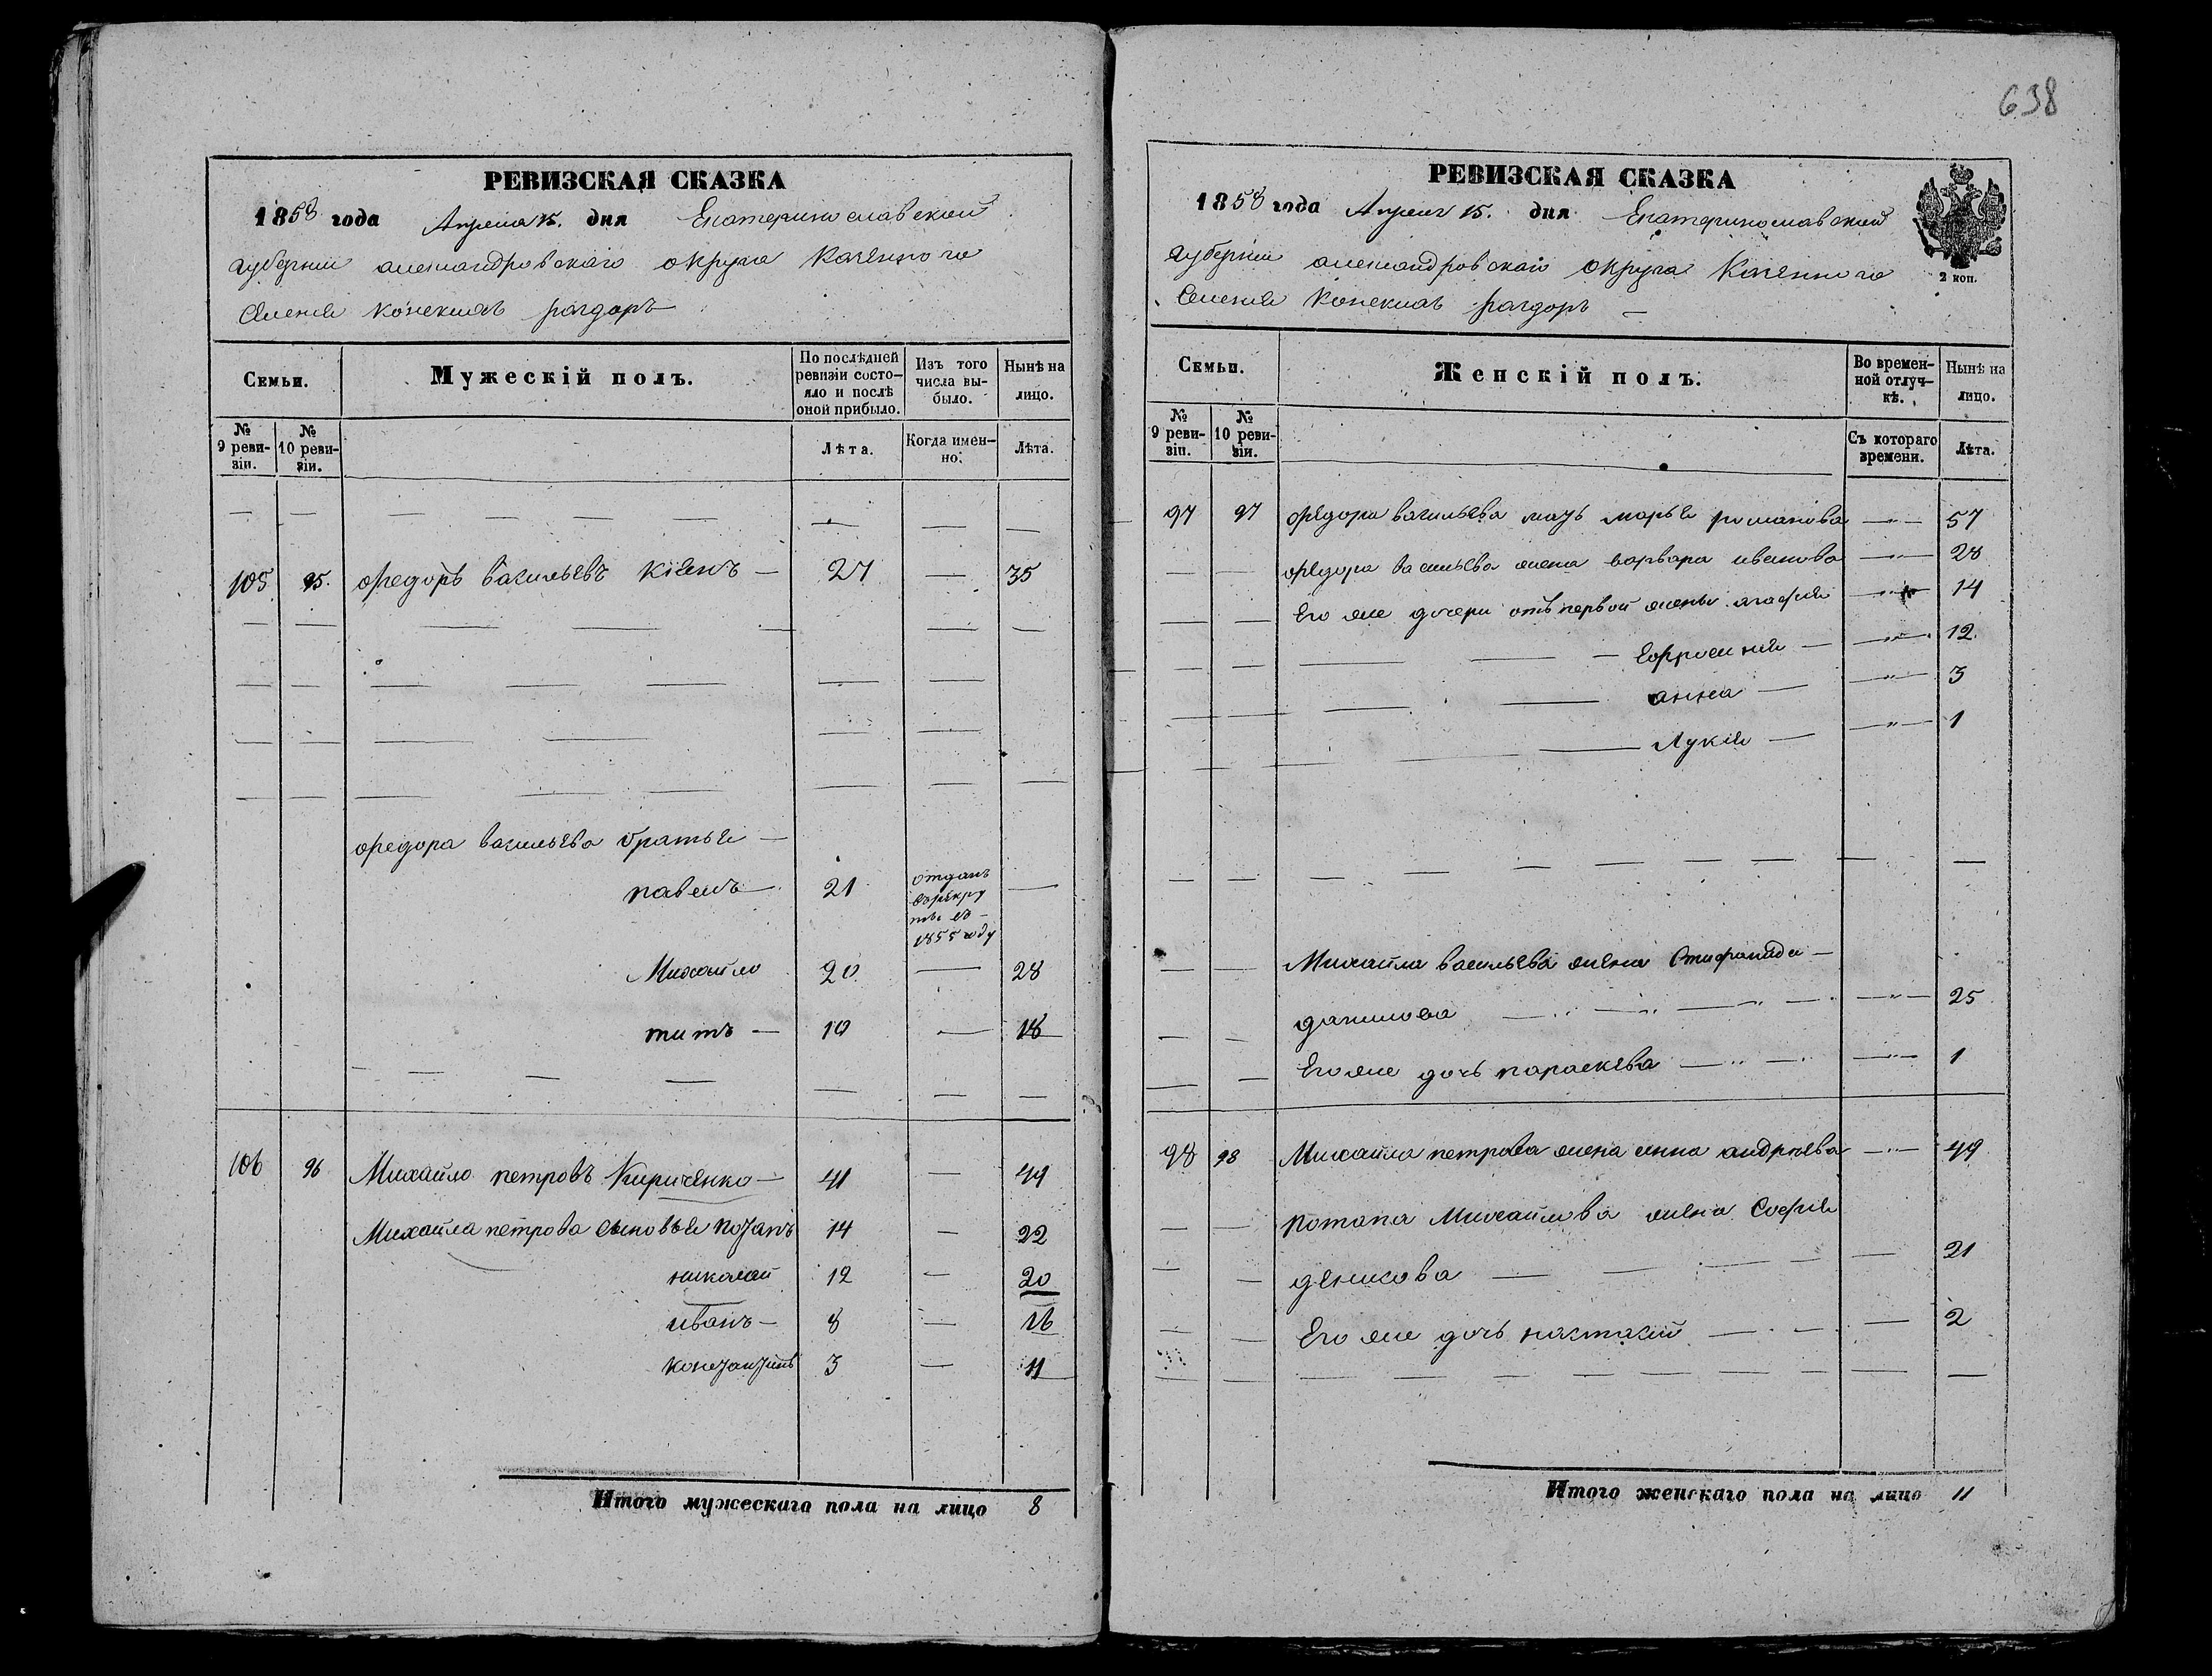 638
РЕВИЗСКАЯ СКАЗКА
1858 года Апреля 15. дня Екатеринославской
губернии александровскаго округа Казенного
Селения Конских раздоръ
Семьи.
Мужескій полъ.
По послѣдней ревизіи состояло и послѣ оной прибыло.
Изъ того числа вы-было.
Нынѣ на лицо.
№ 9 реви-зіи.
№ 10 реви-зіи.
Лѣта.
Когда имен-но.
Лѣта.
105 95. федоръ васильевъ Кіянъ — 27 — 35
федора васильева братья —
павелъ — 21 отданъ въ рекру ты въ 1855 году —
Михайло 20. — 28
титъ — 10 — 18
106 96 Михайло петровъ Кириченко — 41 — 49
Михайла петрова сыновья потапъ 14 — 22
николай 12 — 20
иванъ — 8 — 16
константинъ 3 — 11
Итого мужескаго пола на лицо 8
РЕВИЗСКАЯ СКАЗКА
1858 года Апреля 15. дня Екатеринославской
губернии александровскаго округа Казенного
Селения Конских раздоръ —
2 коп.
Семьи.
Женскій полъ.
Во времен-ной отлуч-кѣ.
Нынѣ на лицо.
№ 9 реви-зіи.
№ 10 реви-зіи.
Съ котораго времени.
Лѣта.
97 97 федора васильева мать марья романова — 57
федора васильева жена варвара иванова — 28
Его же дочери отъ первой жены агафия — 14
Ефросиния — 12.
анна — 3
Лукия — 1
Михайла васильева жена Стифанида —
данилова — 25
Его же дочь параскева — 1
98 98 Михайла петрова жена анна андреева — 49
потапа Михайлова жена София
денисова — 21
Его же дочь настасия — 2
Итого женскаго пола на лицо 11